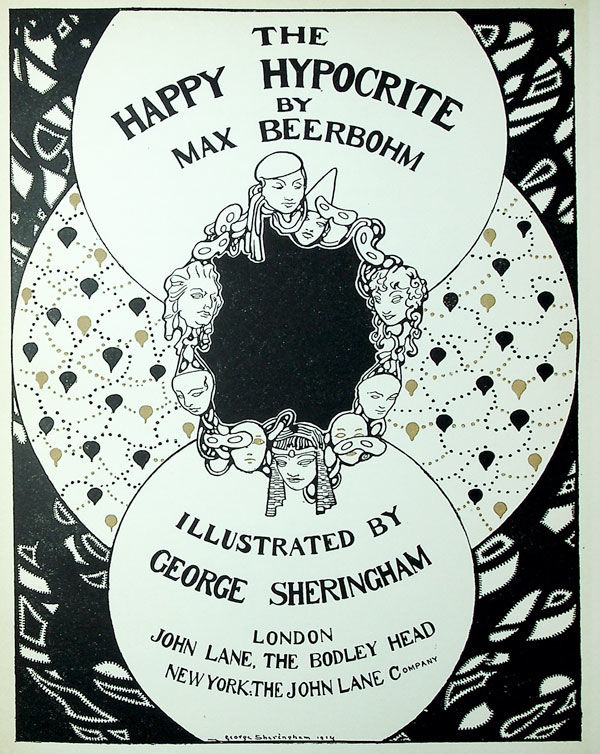 THE
HAPPY HYPOCRITE
BY
MAX BEERBOHM
ILLUSTRATED BY
GEORGE SHERINGHAM
LONDON
JOHN LANE, THE BODLEY HEAD
NEW YORK: THE JOHN LANE COMPANY
George Sheringham 1914